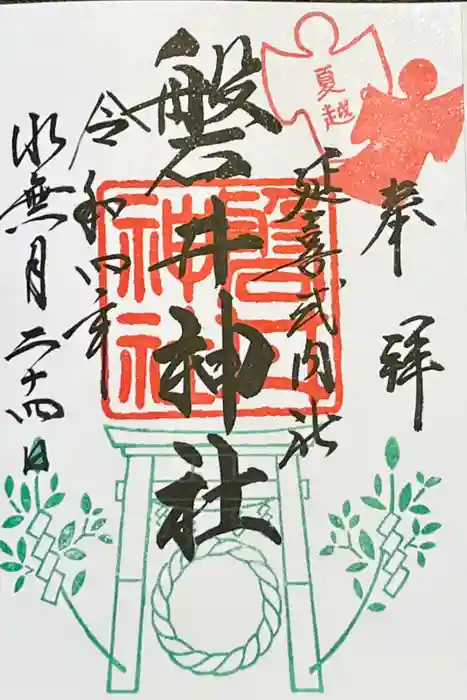 奉拝
夏越
延喜式内社
磐井神社
磐井神社
令和四年
水無月二十四日